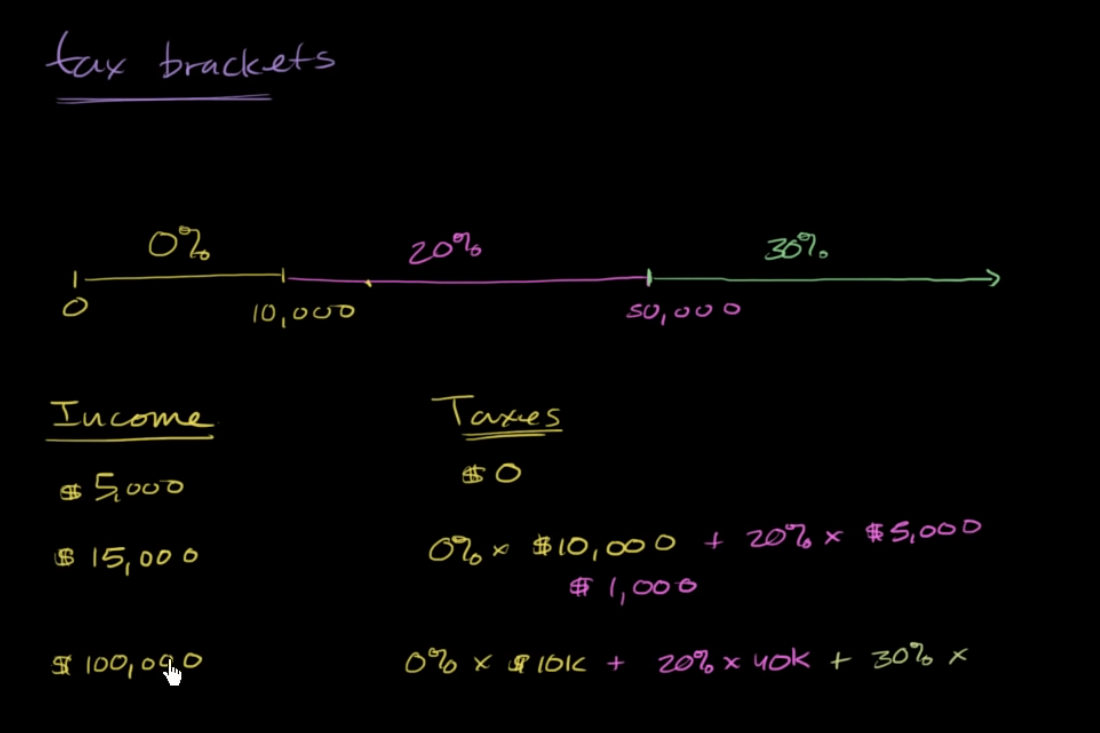 tax brackets
0% 20% 30%
0 10,000 50,000
Income Taxes
$5,000 $0
$15,000 0% x $10,000 + 20% x $5,000
$1,000
$100,000 0% x $10K + 20% x 40K + 30% x